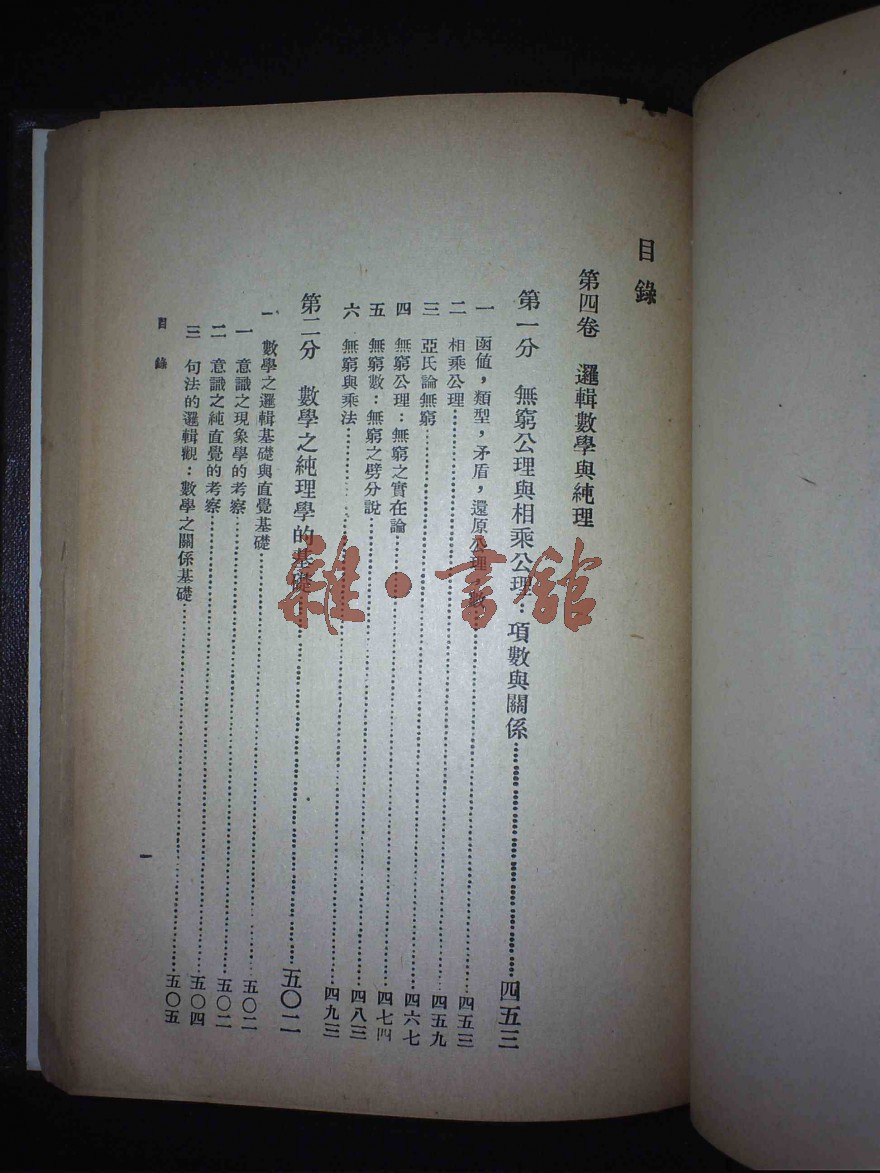 目錄
第四卷 邏輯數學與純理
第一分 無窮公理與相乘公理:項數與關係……四五三
一 函值,類型,矛盾,還原公理,數……四五三
二 相乘公理……四五九
三 亞氏論無窮……四六七
四 無窮公理:無窮之實在論……四七四
五 無窮數:無窮之劈分說……四八三
六 無窮與乘法……四九三
第二分 數學之純理學的基礎……五〇二
一 數學之邏輯基礎與直覺基礎……五〇二
一 意識之現象學的考察……五〇二
二 意識之純直覺的考察……五〇四
三 句法的邏輯觀:數學之關係基礎……五〇五
目錄
一
雜·書館